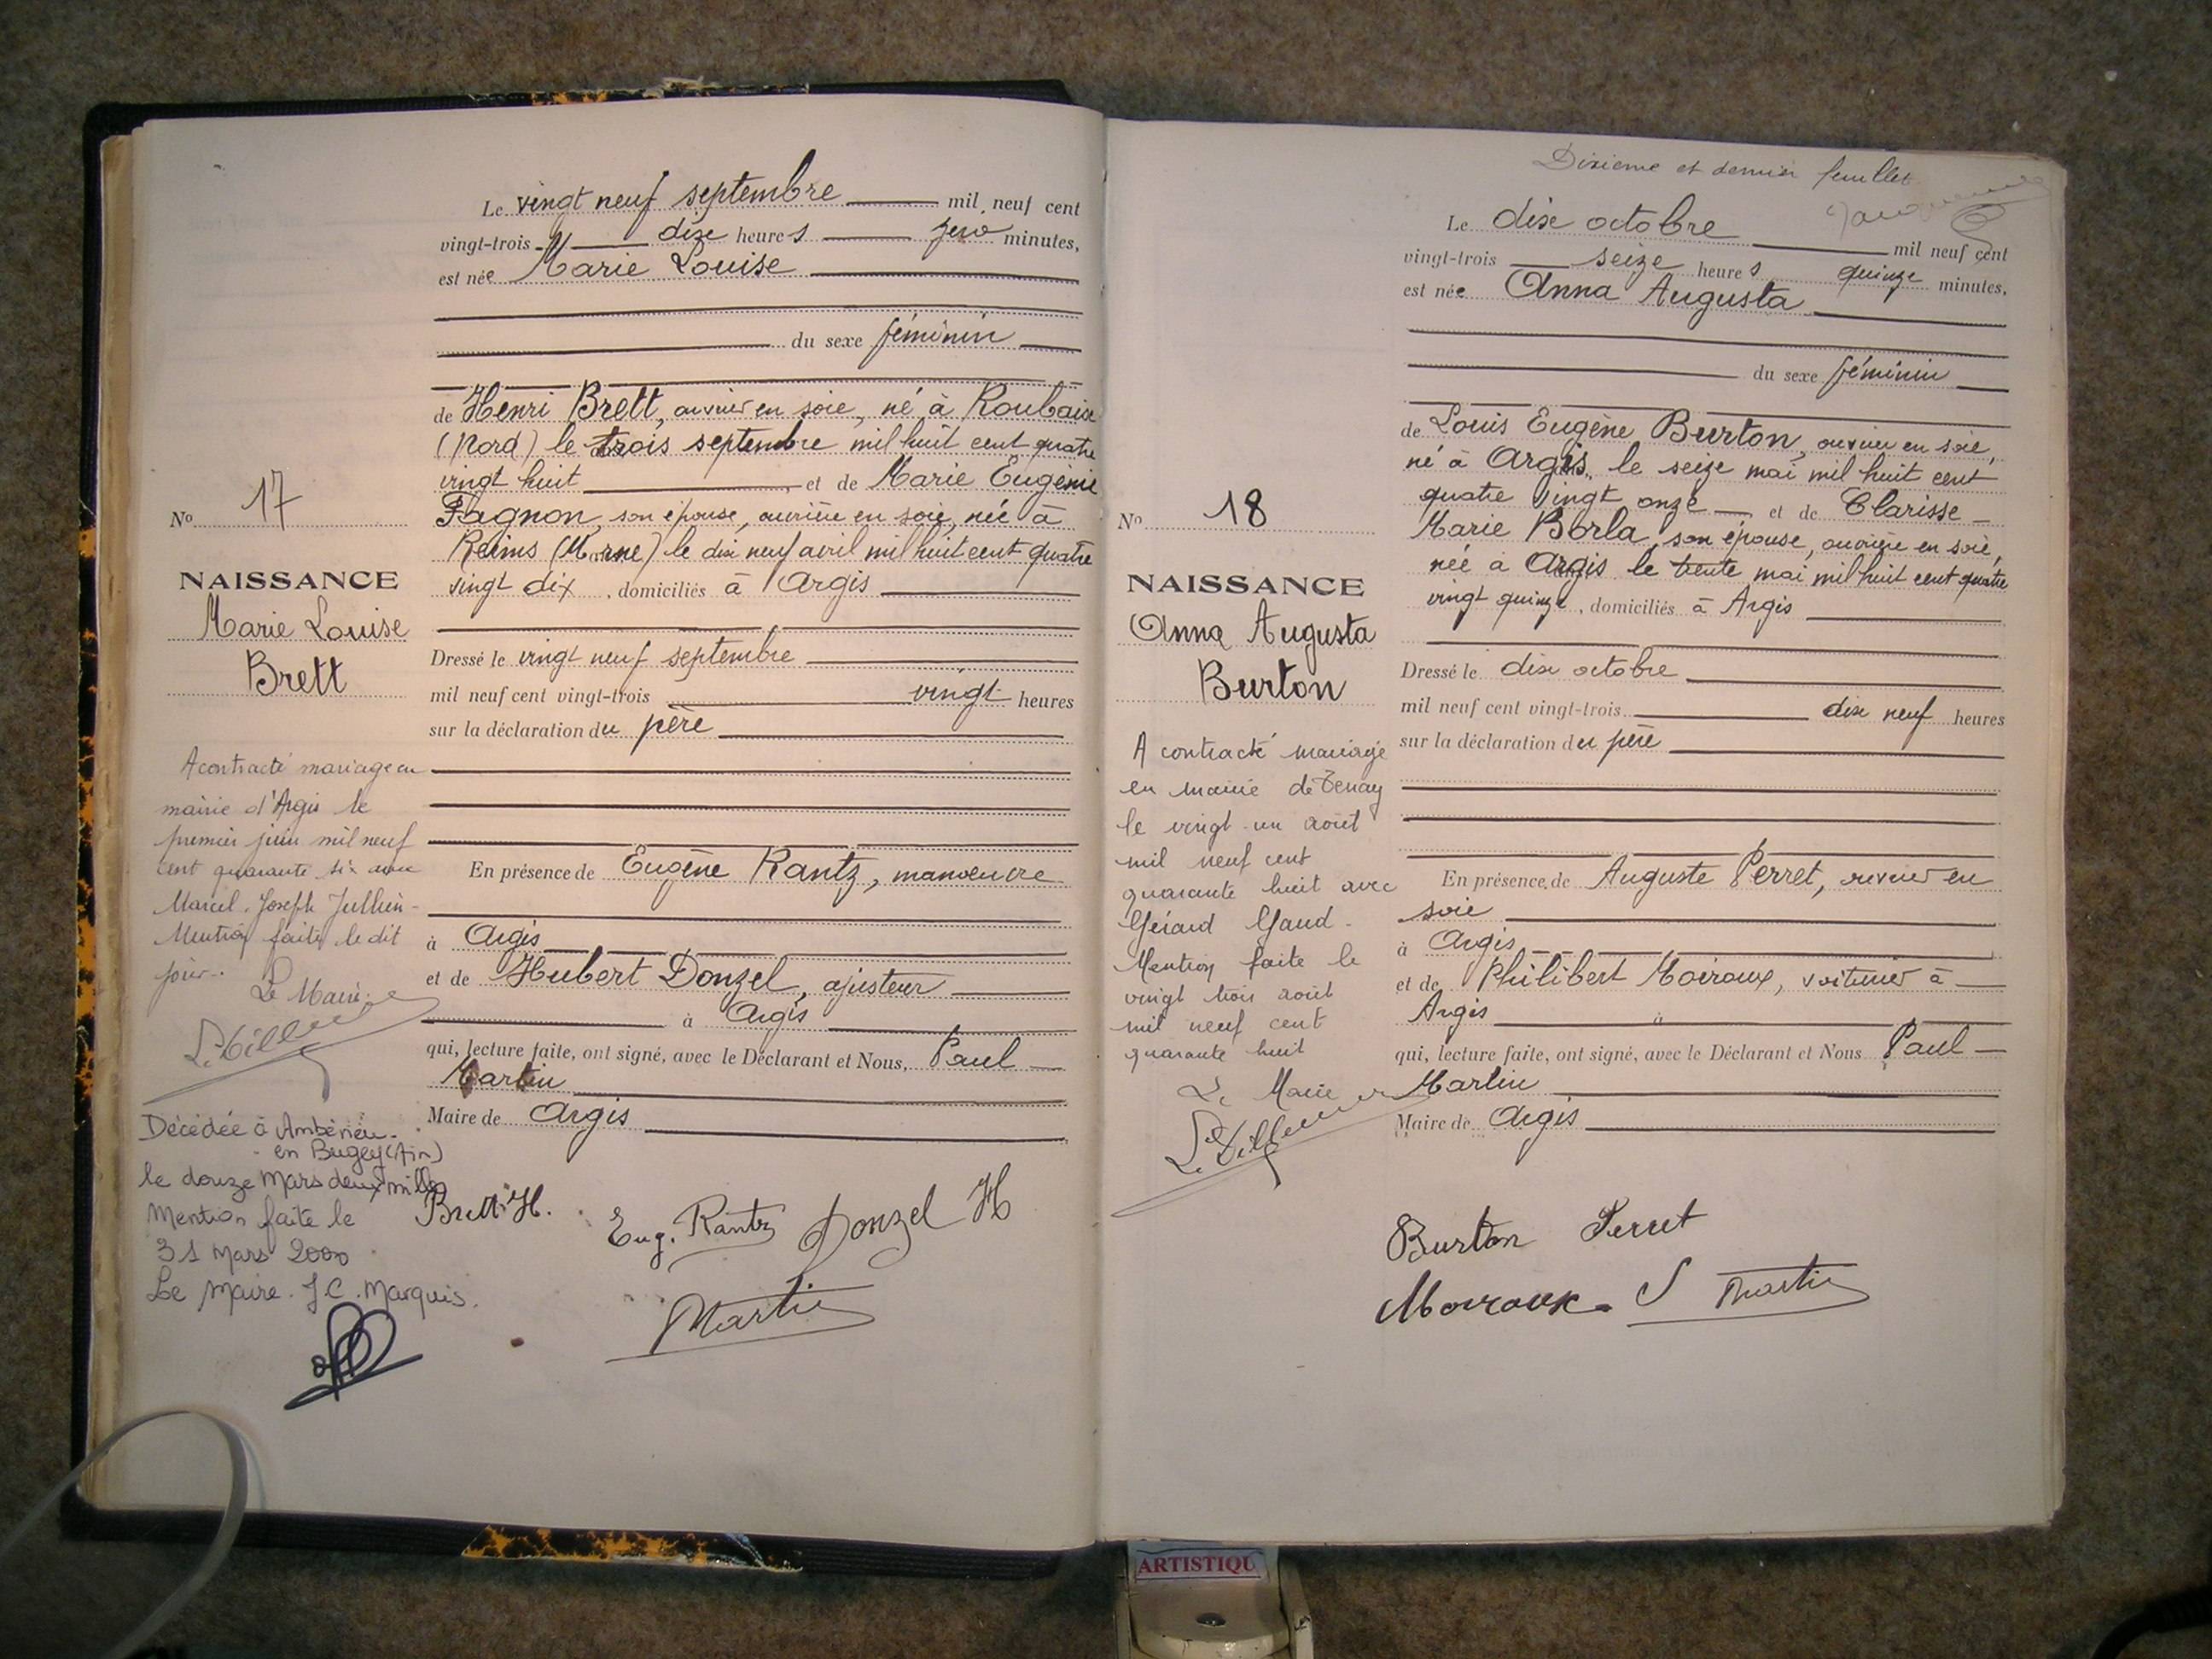 Le vingt neuf septembre mil neuf cent
vingt-trois à dix heures zéro minutes,
est née Marie Louise
du sexe féminin
de Henri Brett, ouvrier en soie, né à Roubaix
(Nord) le trois septembre mil huit cent quatre
vingt huit, et de Marie Eugénie
Pagnon, son épouse, ouvrière en soie, née à
Reims (Marne) le dix neuf avril mil huit cent quatre
vingt dix, domiciliés à Argis
Dressé le vingt neuf septembre
mil neuf cent vingt-trois vingt heures
sur la déclaration du père
En présence de Eugène Rantz, manoeuvre
à Argis
et de Hubert Donzel, ajusteur
à Argis
qui, lecture faite, ont signé, avec le Déclarant et Nous, Paul
Martin
Maire de Argis
Brett H. Eug. Rantz Donzel H
Martin
No 17
NAISSANCE
Marie Louise
Brett
A contracté mariage en
mairie d'Argis le
premier juin mil neuf
cent quarante six avec
Marcel Joseph Jullien -
Mention faite le dit
jour.
Le Maire
Décédée à Ambérieu-
en Bugey (Ain)
le douze Mars deux mille
Mention faite le
31 Mars 2000
Le Maire. J.C. Marquis.
Dixieme et dernier feuillet
Le dix octobre mil neuf cent
vingt-trois seize heures quinze minutes,
est née Anna Augusta
du sexe féminin
de Louis Eugène Burton, ouvrier en soie,
né à Argis, le seize mai mil huit cent
quatre vingt onze et de Clarisse
Marie Borla, son épouse, ouvrière en soie,
née à Argis le trente mai mil huit cent quatre
vingt quinze, domiciliés à Argis
Dressé le dix octobre
mil neuf cent vingt-trois dix neuf heures
sur la déclaration du père
En présence de Auguste Perret, ouvrier en
soie
à Argis
et de Philibert Moiroux, voiturier à
Argis à
qui, lecture faite, ont signé, avec le Déclarant et Nous Paul
Martin
Maire de Argis
Burton Perret
Moiroux Martin
No 18
NAISSANCE
Anna Augusta
Burton
A contracté mariage
en mairie de Tenay
le vingt-un août
mil neuf cent
quarante huit avec
Gérard Gaud -
Mention faite le
vingt trois août
mil neuf cent
quarante huit
Le Maire
ARTISTIQU